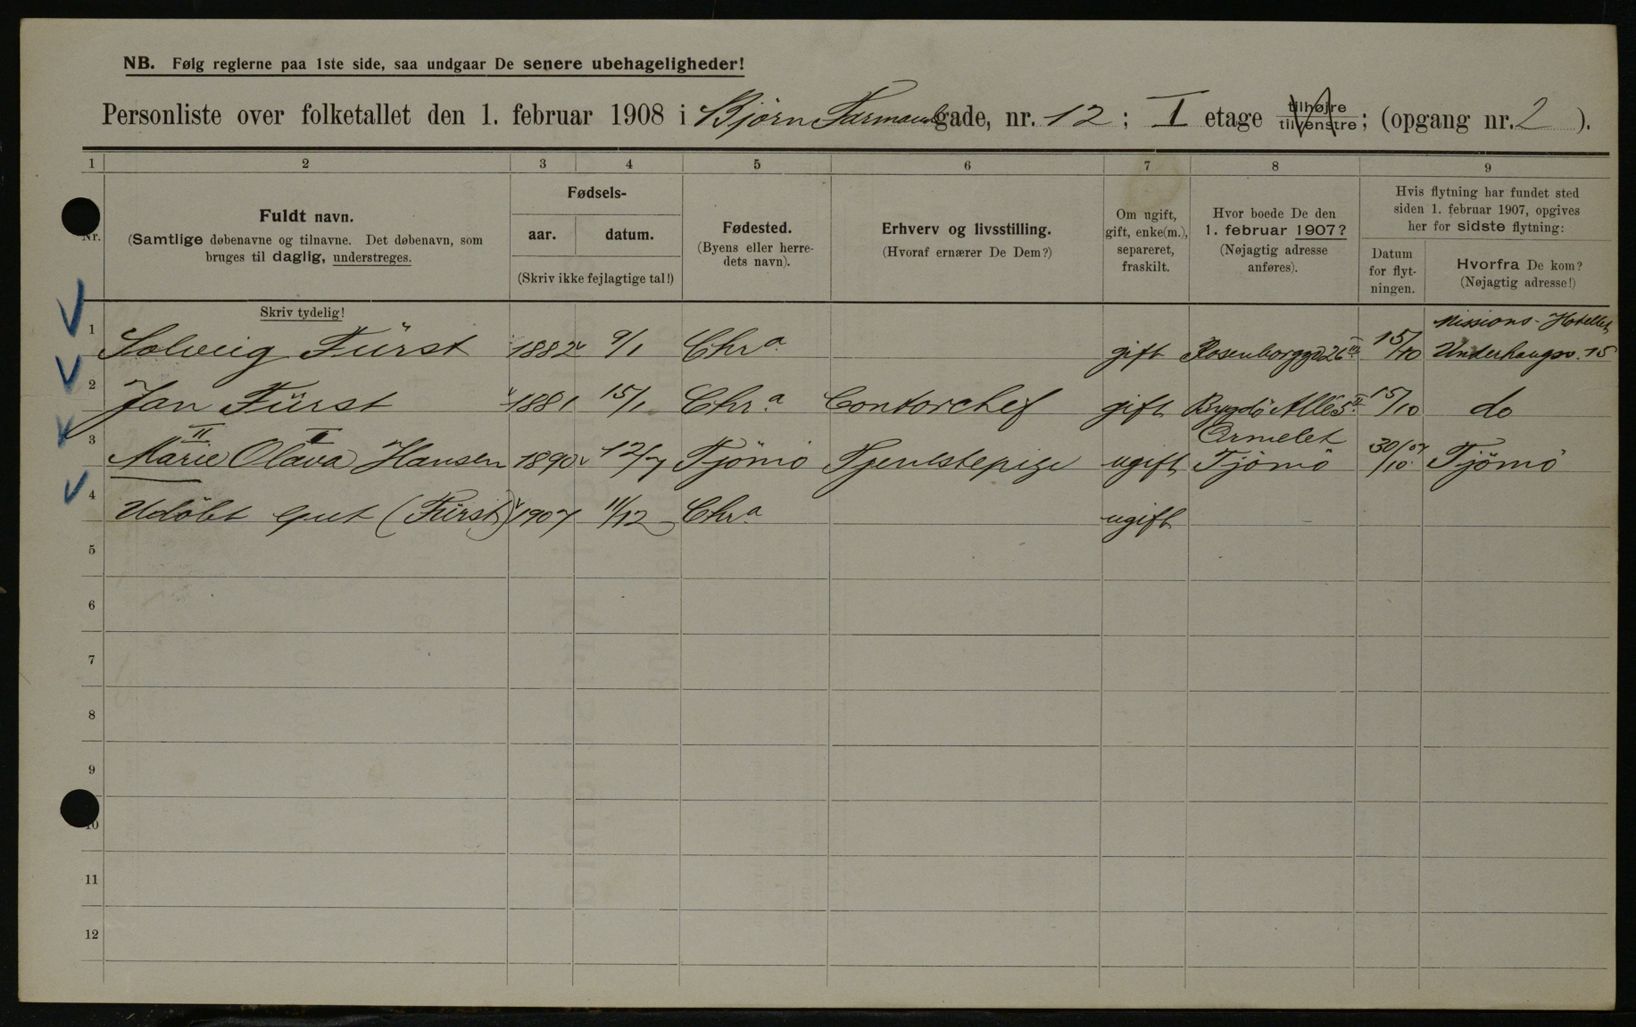 NB. Følg reglerne paa 1ste side, saa undgaar De senere ubehageligheder!
Personliste over folketallet den 1. februar 1908 i Bjørn Farmandsgade, nr. 12; I etage tilhøjre tilvenstre; (opgang nr. 2).
1 2 3 4 5 6 7 8 9
Nr.
Fuldt navn.
(Samtlige døbenavne og tilnavne. Det døbenavn, som
bruges til daglig, understreges.
Skriv tydelig!
Fødsels-
aar. datum.
(Skriv ikke fejlagtige tal!)
Fødested.
(Byens eller herre-
dets navn).
Erhverv og livsstilling.
(Hvoraf ernærer De Dem?)
Om ugift,
gift, enke(m.),
separeret,
fraskilt.
Hvor boede De den
1. februar 1907?
(Nøjagtig adresse
anføres).
Hvis flytning har fundet sted
siden 1. februar 1907, opgives
her for sidste flytning:
Datum
for flyt-
ningen.
Hvorfra De kom?
(Nøjagtig adresse!)
Missions-Hotellet
1 Solveig Fürst 1882 9/1 Chr.a gift Rosenborggd 26 III 15/10 Underhaugsv. 15
2 Jan Fürst 1881 15/1 Chr.a Contorchef gift Bygdö Allé 5 II 15/10 do
II I Ormelet
3 Marie Olava Hansen 1890 12/7 Tjömö Tjenestepige ugift Tjömö 30/10 07 Tjömö
4 Udöbt gut (Fürst) 1907 11/12 Chr.a ugift
5
6
7
8
9
10
11
12